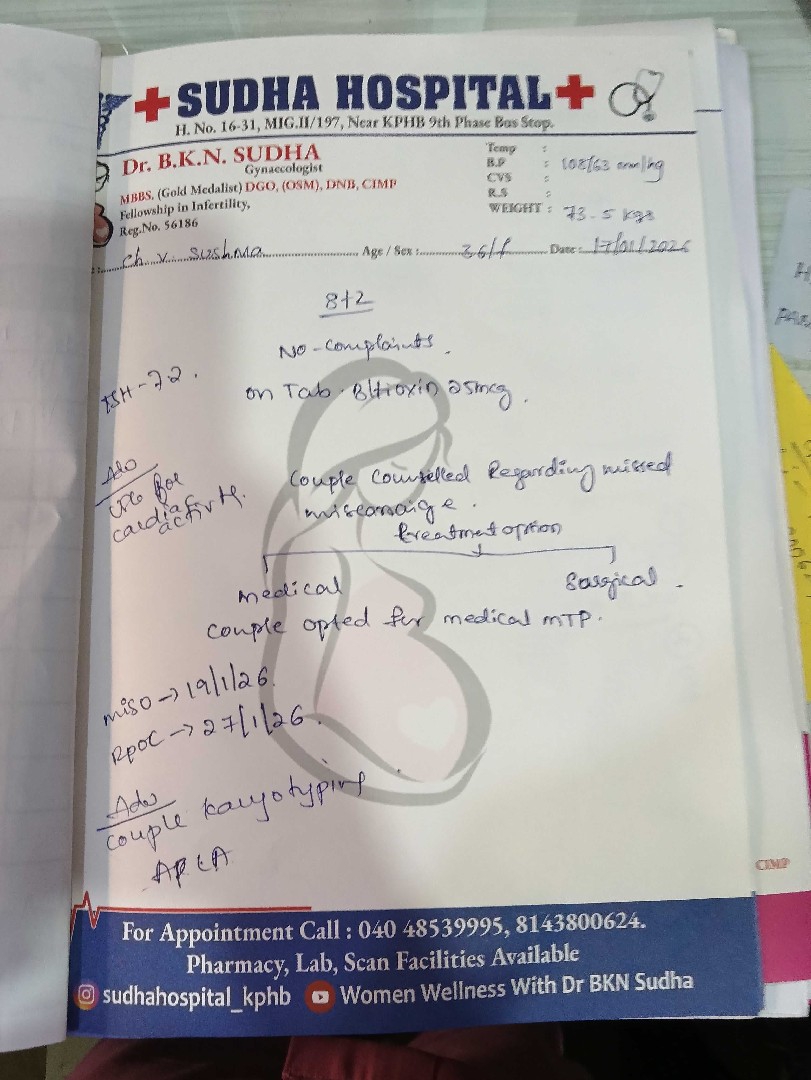 SUDHA HOSPITAL
H. No. 16-31, MIG.II/197, Near KPHB 9th Phase Bus Stop.
Dr. B.K.N. SUDHA
Gynaecologist
MBBS, (Gold Medalist) DGO, (OSM), DNB, CIMP
Fellowship in Infertility,
Reg.No. 56186
Temp :
B.P : 108/63 mm/hg
CVS :
R.S :
WEIGHT : 73.5 kgs
Ch. V. Sushma Age / Sex : 36/f Date : 17/01/2026
8+2
No-complaints.
TSH-7.2.
on Tab. Bltroxin 25mcg.
Adv
for
cardiac
activity.
Couple Counselled Regarding missed
miscarraige.
treatment option
Medical Surgical.
Couple opted for medical MTP.
miso → 19/1/26.
RPOC → 27/1/26.
Adv
couple karyotyping.
APLA
CIMP
For Appointment Call : 040 48539995, 8143800624.
Pharmacy, Lab, Scan Facilities Available
sudhahospital_kphb Women Wellness With Dr BKN Sudha